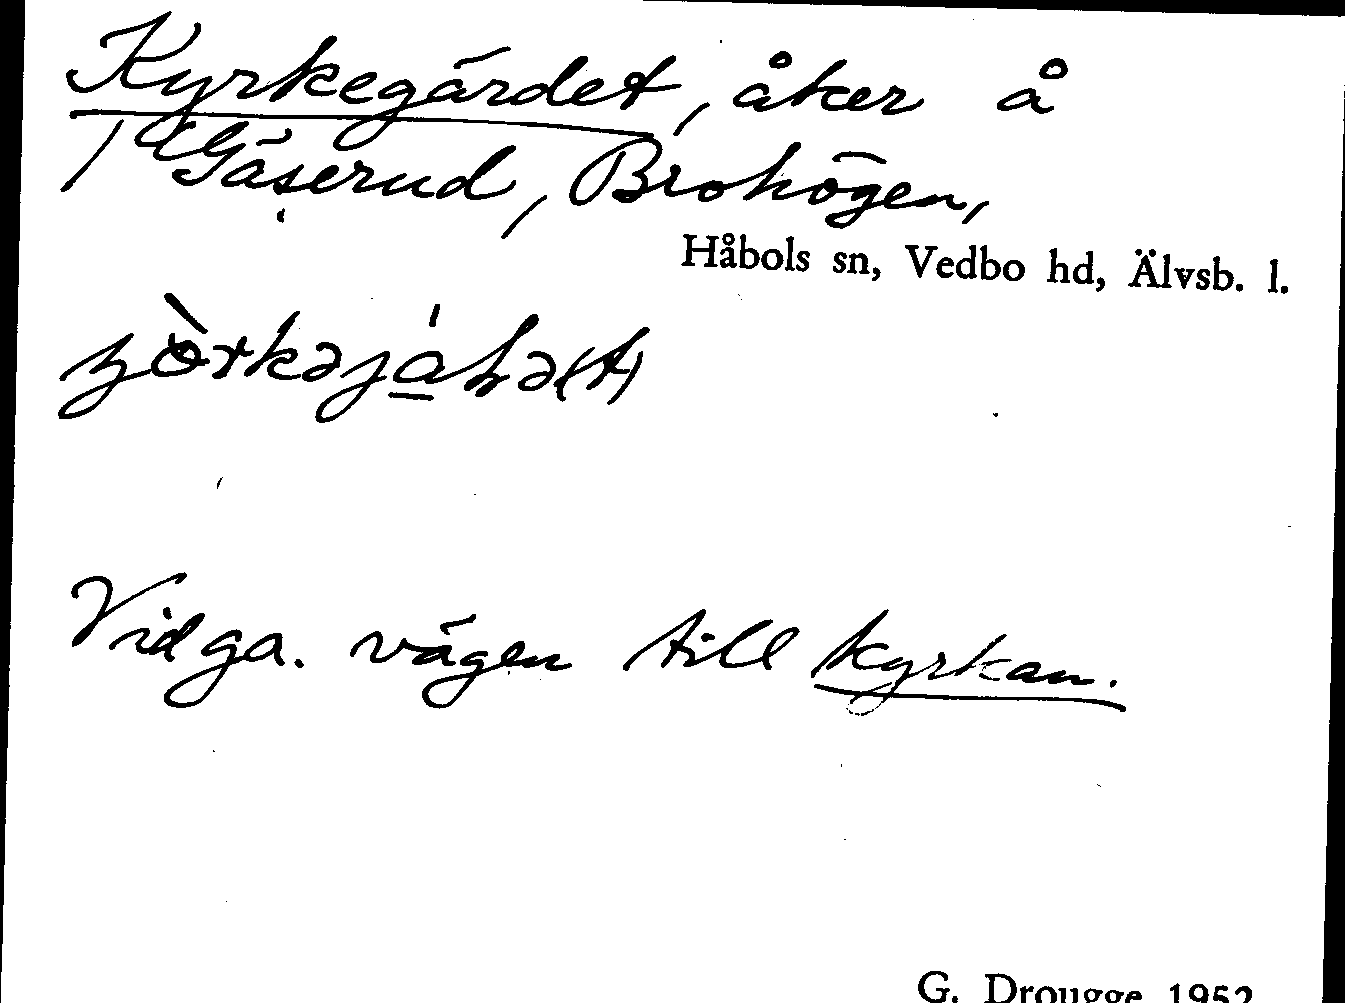 Kyrkegärdet, åker å
Gäserud, Brohögen,
Håbols sn, Vedbo hd, Älvsb. l.
Vid ga. vägen till kyrkan.
G. Drougge 1952